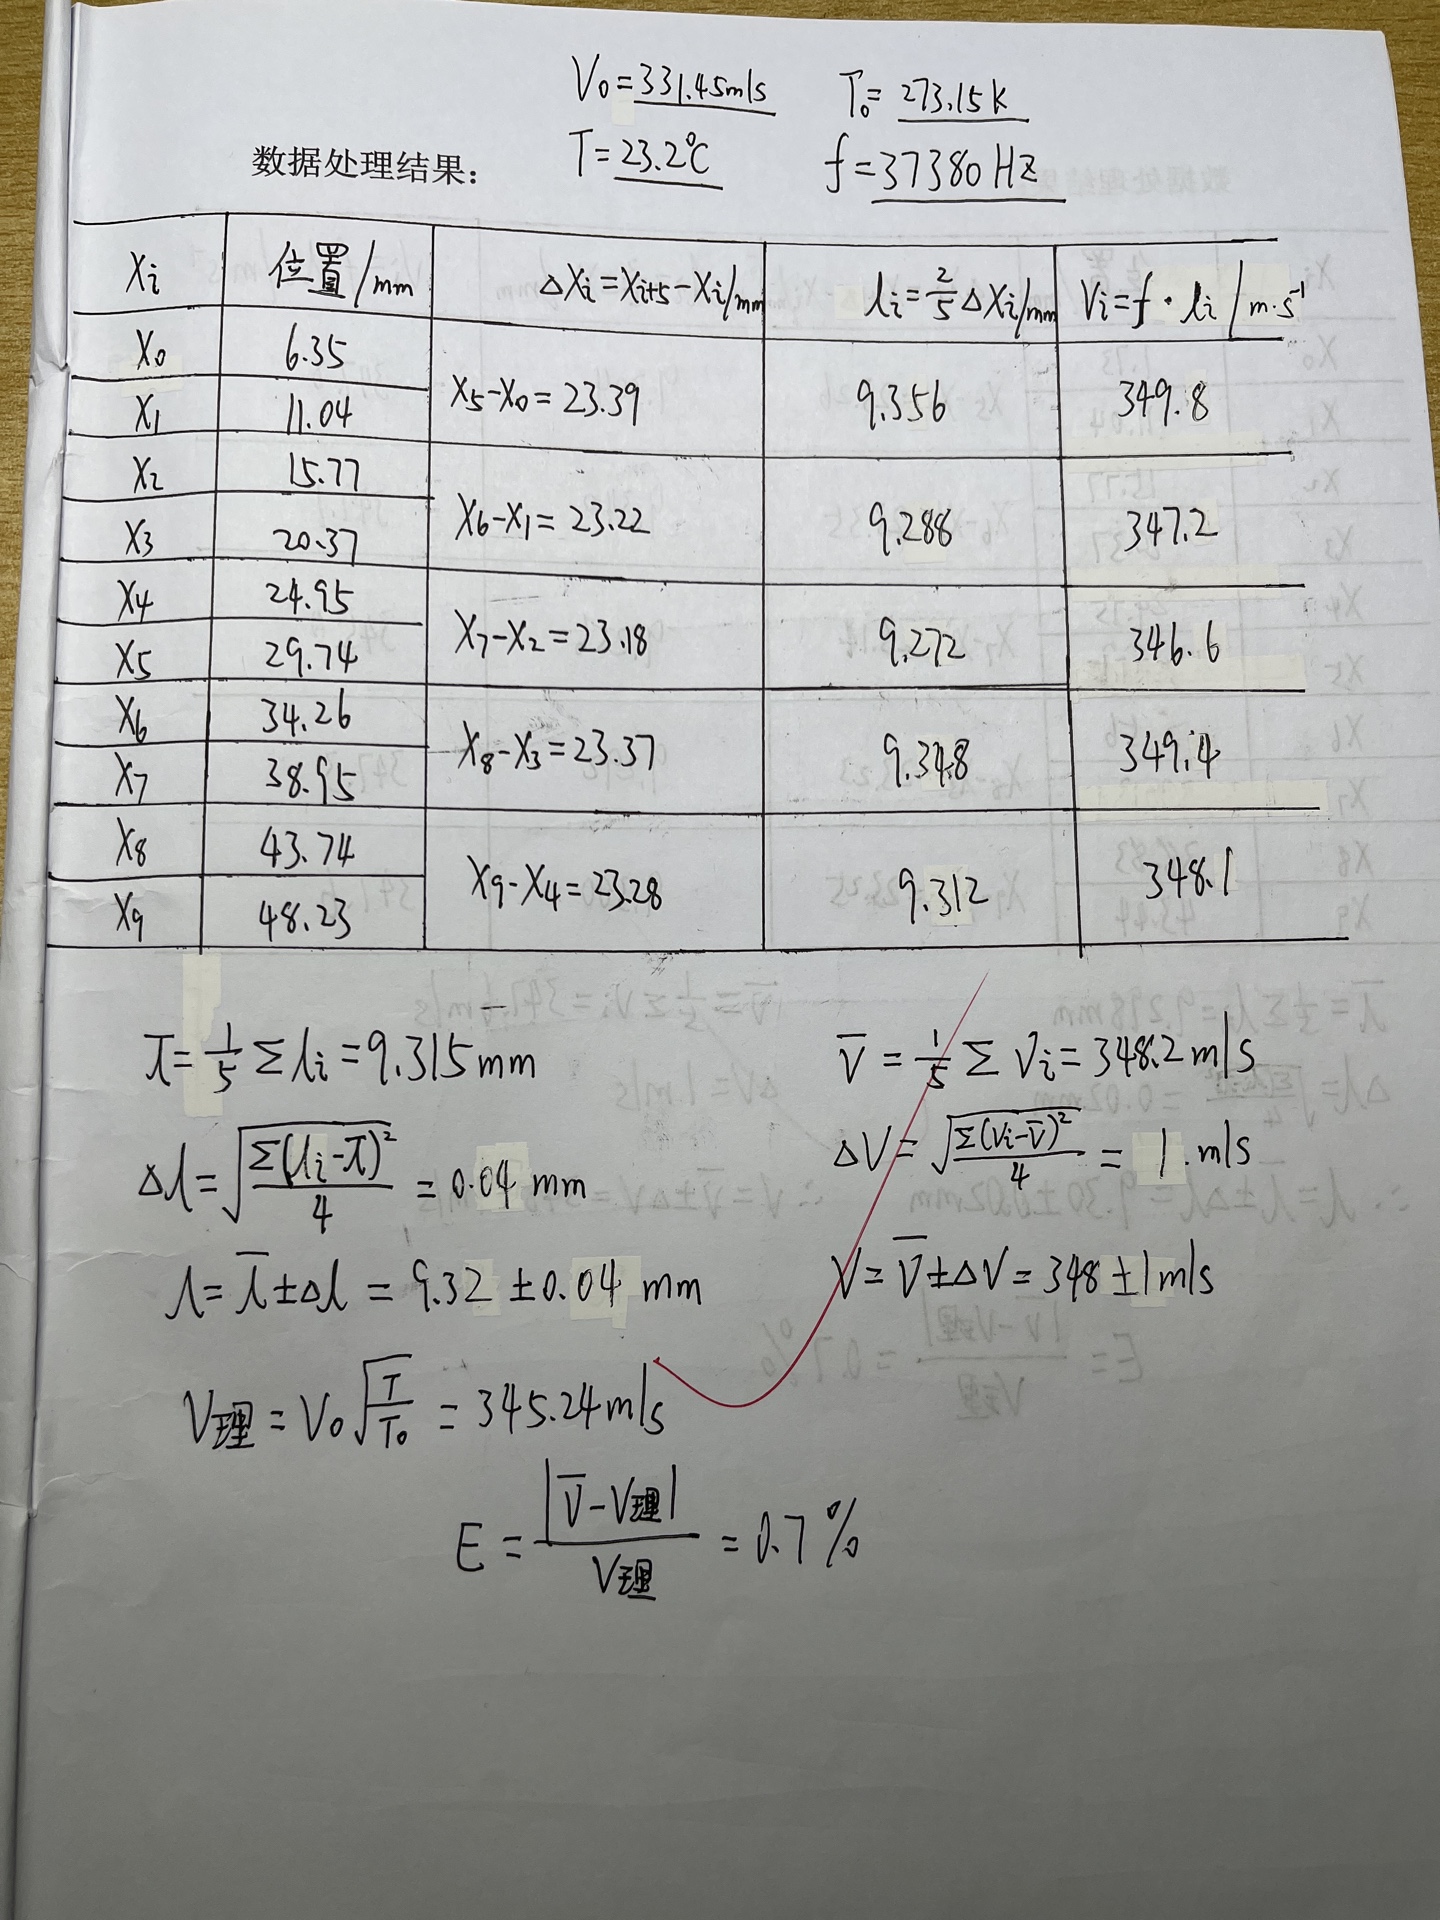 V₀=331.45m/s T₀=273.15K
数据处理结果: T=23.2℃ f=37380Hz
Xi 位置/mm ΔXi=Xi+5-Xi/mm λi=2/5ΔXi/mm Vi=f·λi/m·s⁻¹
X₀ 6.35 X₅-X₀=23.39 9.356 349.8
X₁ 11.04
X₂ 15.77 X₆-X₁=23.22 9.288 347.2
X₃ 20.37
X₄ 24.95 X₇-X₂=23.18 9.272 346.6
X₅ 29.74
X₆ 34.26 X₈-X₃=23.37 9.348 349.4
X₇ 38.95
X₈ 43.74 X₉-X₄=23.28 9.312 348.1
X₉ 48.23
λ̄=1/5Σλi=9.315mm V̄=1/5ΣVi=348.2m/s
Δλ=√(Σ(λi-λ̄)²/4)=0.04mm ΔV=√(Σ(Vi-V̄)²/4)=1.m/s
λ=λ̄±Δλ=9.32±0.04mm V=V̄±ΔV=348±1m/s
V理=V₀√(T/T₀)=345.24m/s
E=|V̄-V理|/V理=0.7%